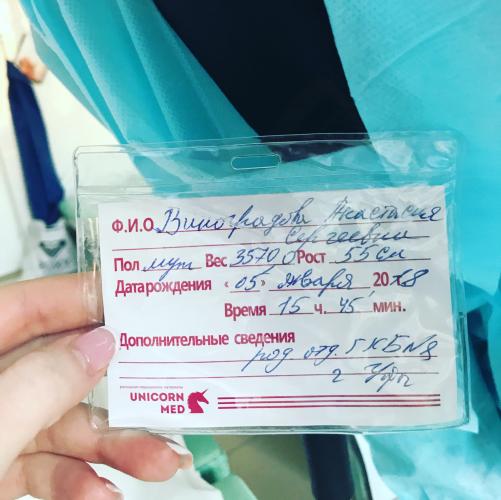 Ф.И.О Виноградова Анастасия
Сергеевна
Пол муж Вес 3570 Рост 55 см
Дата рождения «05» января 2018
Время 15 ч. 45 мин.
Дополнительные сведения
род отд. ГКБ№8
г Уфы
UNICORN
MED